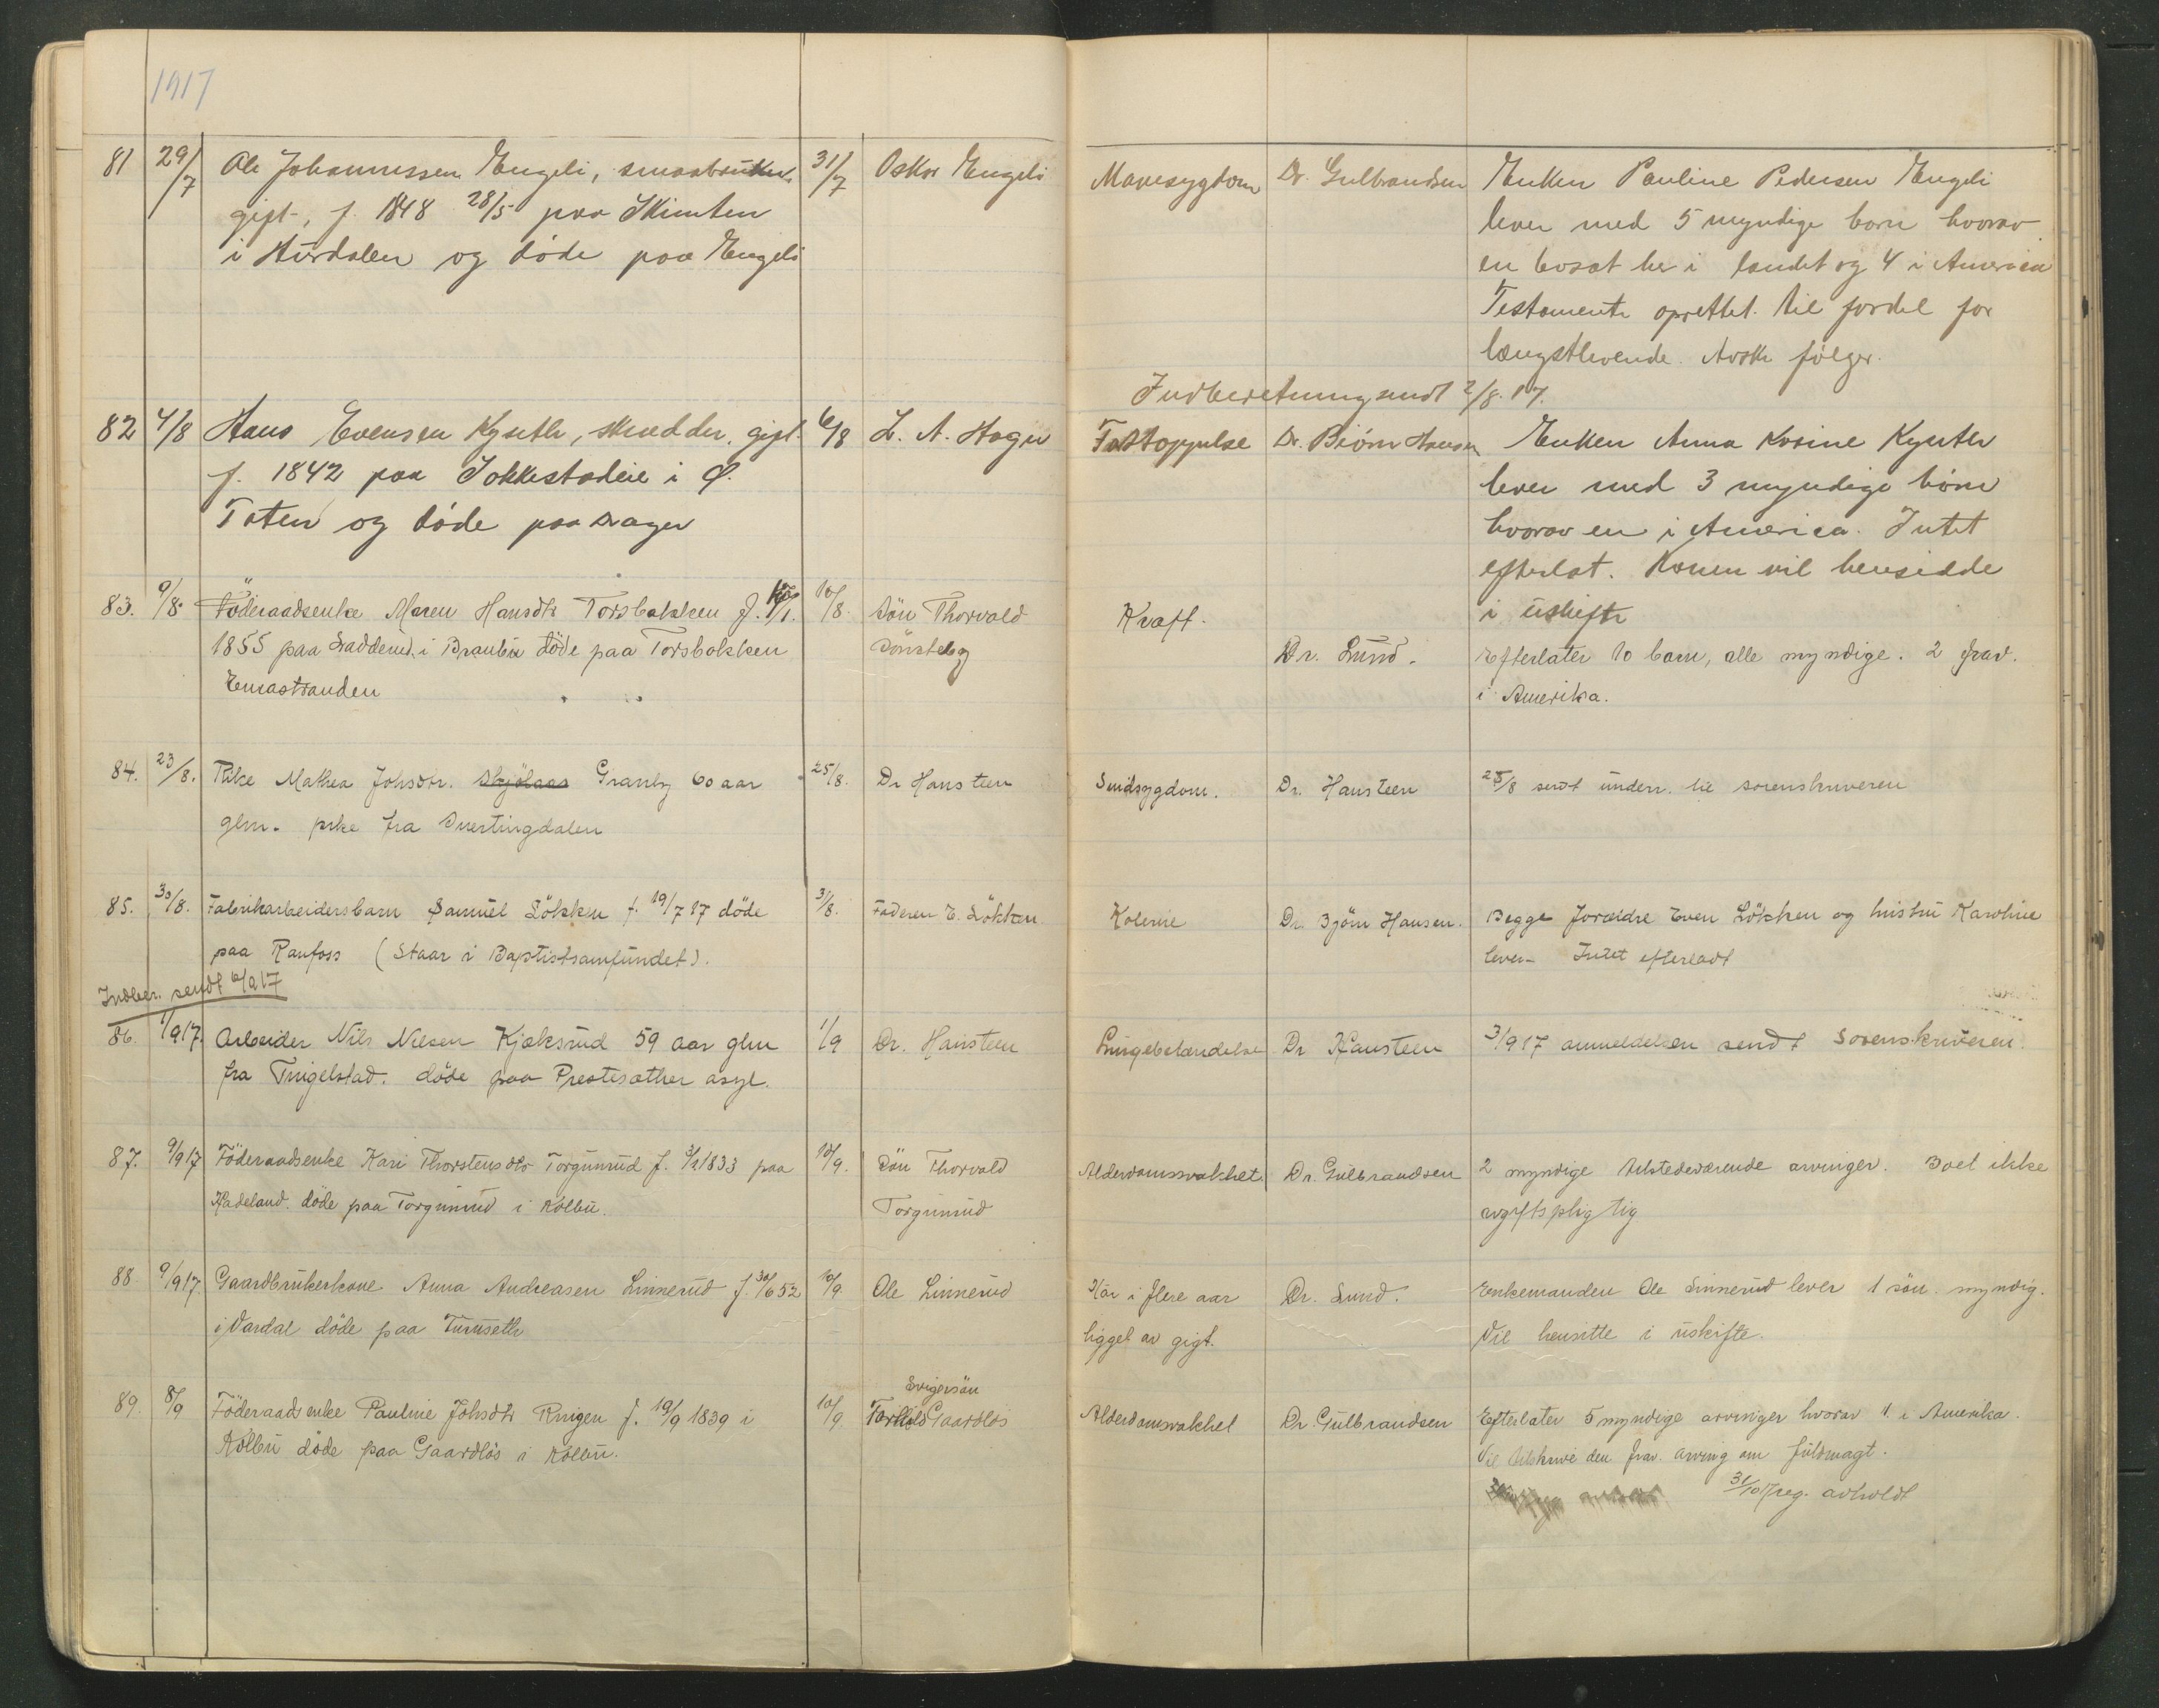 1917
81 29/7 Ole Johannessen Engeli, smaabruker 31/7 Oskar Engeli Mavesygdom Dr. Gulbrandsen Enken Pauline Pedersen Engeli
gift, f. 1848 28/5 paa Skimten lever med 5 myndige barn hvorav
i Hurdalen og døde paa Engeli en bosat her i landet og 4 i America
Testamente oprettet til fordel for
længstlevende. Avskr følger.
Indberetning sendt 2/8. 17.
82 4/8 Hans Evensen Kyseth, skrædder, gift. 6/8 L. A. Hagen Dr. Biörn Hansen Enken Anna Karine Kyseth
f. 1842 paa Sokkestadeie i Ø. lever med 3 myndige börn
Toten og døde paa Dager hvorav en i America. Intet
efterlat. Konen vil hensidde
i uskifte
83. 9/8. Föderaadsenke Maren Hansdtr Torsbakken f. 10/8. Sön Thorvald Kræft. Dr. Lund. Efterlater 10 barn, alle myndige. 2 frav.
1855 paa i Brandbu döde paa Torsbakken Sönsteby i Amerika.
Einastranden
84. 23/8. Pike Mathea Johsdtr. Skjölaas Granby 60 aar 25/8. Dr Hansteen Sindsygdom. Dr. Hansteen 25/8 sendt underr. til sorenskriveren
glm. pike fra Snertingdalen
85. 30/8. Fabrikarbeidersbarn Samuel Lökken f. 19/7 17 döde 31/8. Faderen E. Lökken Kolerine Dr. Björn Hansen. Begge forældre Even Lökken og hustru Karoline
paa Raufoss (Staar i Baptistsamfundet). lever. Intet efterladt
Indber. sendt 6/9 17
86. 1/9 17. Arbeider Nils Nilsen Kjøksrud 59 aar glm 1/9 Dr. Hansteen Lungebetændelse Dr Hansteen 3/9 17 anmeldelsen sendt Sorenskriveren.
fra Tingelstad. döde paa Prestesæther asyl.
87. 9/9 17 Föderaadsenke Kari Thorstensdtr Torgunrud f. 1833 paa 10/9. Sön Thorvald Alderdomssvakhet Dr. Gulbrandsen 2 myndige tilstedeværende arvinger. Boet ikke
Hadeland. döde paa Torgunrud i Kolbu. Torgunrud avgiftspligtig
88 9/9 17 Gaardbrukerkone Anna Andreasen Linnerud f. 30/6 52 10/9. Ole Linnerud Har i flere aar Dr. Lund. Enkemanden Ole Linnerud lever 1 sön myndig.
i Vardal döde paa Turuseth ligget av gigt. Vil hensitte i uskifte.
89. 8/9 Föderaadsenke Pauline Johsdtr Ringen f. 19/9 1839 i 10/9. Svigersön Alderdomsvakhet Dr. Gulbrandsen Efterlater 5 myndige arvinger hvorav 1 i Amerika.
Kolbu döde paa Gaardlös i Kolbu. Gaardlös Vil tilskrive den frav. arving om fuldmagt.
31/10 17 reg. avholdt